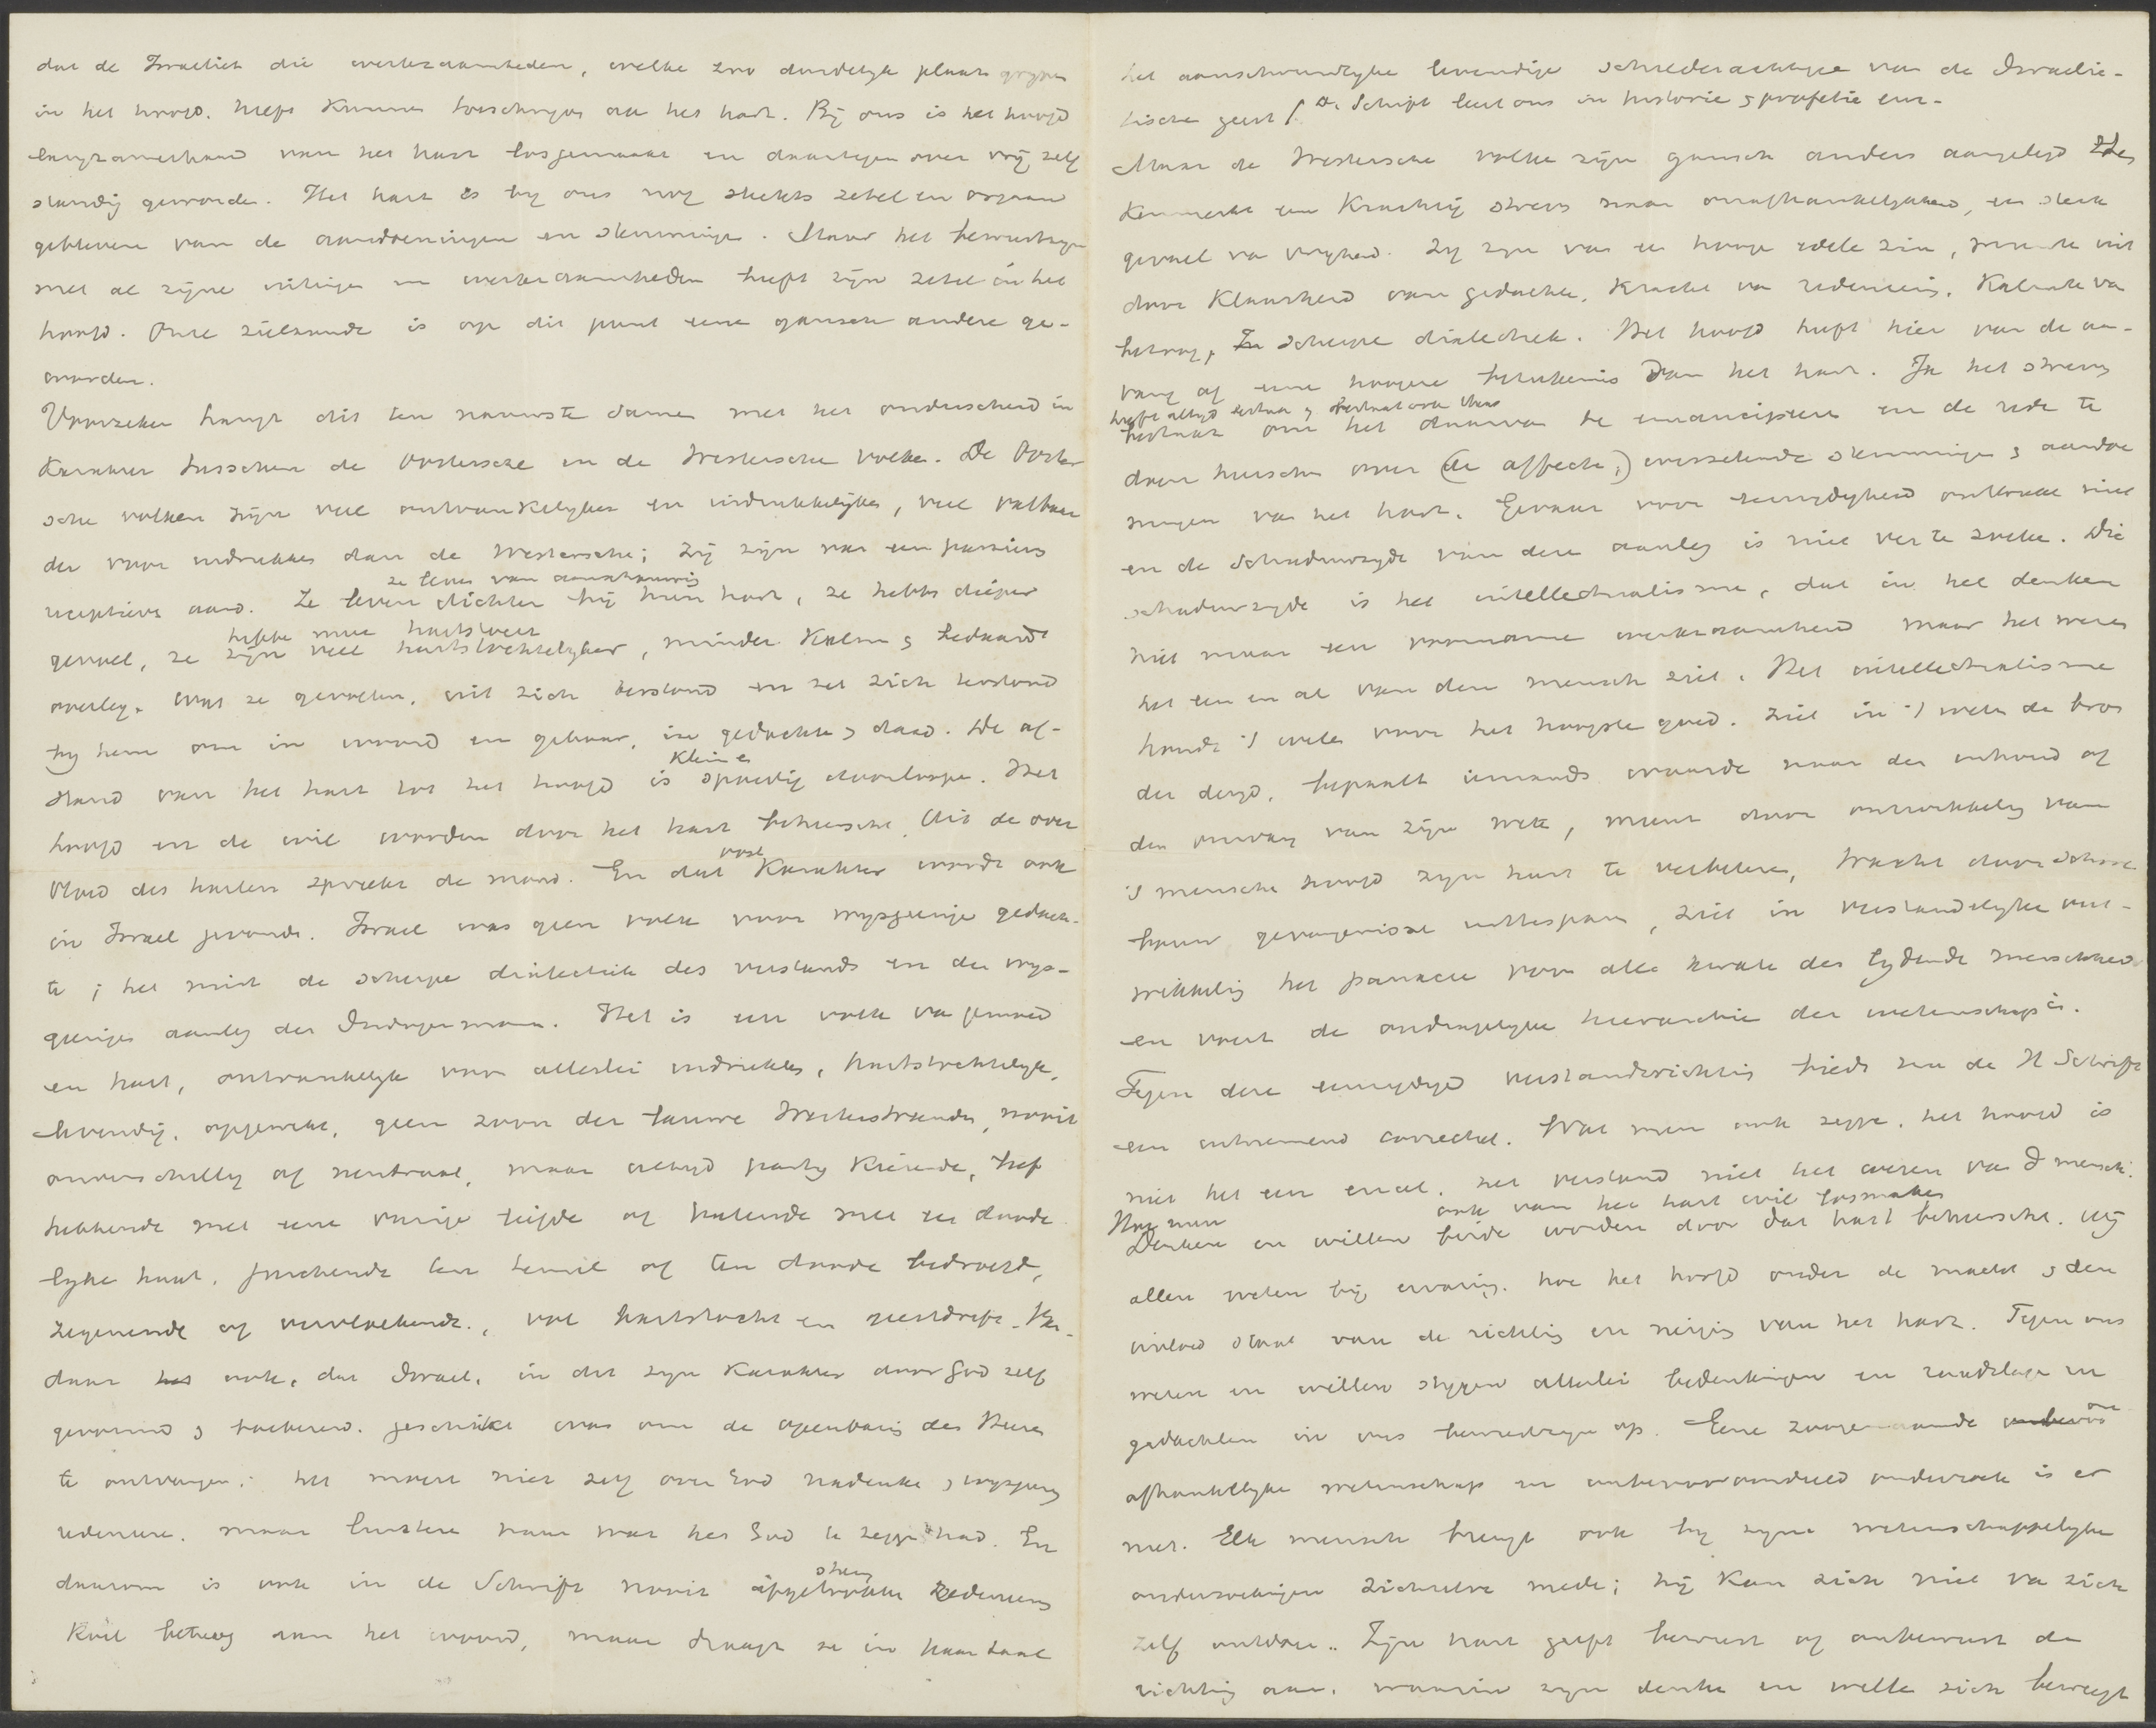 dat de Israeliet die werkzaamheden, welke zoo duidelijk plaats grypen
in het hoofd, heeft kunnen toeschrijven aan het hart. Bij ons is het hoofd
langzamerhand van het hart losgemaakt en daartegenover vrij zelf
standig geworden. Het hart is bij ons nog slechts zetel en orgaan
gebleven van de aandoeningen en stemmingen. Maar het bewustzijn
met al zijne uitingen en werkzaamheden heeft zijn zetel in het
hoofd. Onze zielkunde is op dit punt eene gansch andere ge-
worden.
Voorzeker hangt dit ten nauwste samen met het onderscheid in
karakter tusschen de Oostersche en de Westersche volken. De Ooster
sche volken zijn veel ontvankelijker en indrukkelijker, veel vatbaar
der voor indrukken dan de Westersche; zij zijn van een passieven
receptieven aard. Ze leven dichter bij hun hart, ze hebben dieper
ze leven van aanschouwing
gevoel, ze zijn veel hartstochtelijker, minder kalm & bedaard
hebben meer hartstocht
overleg. Wat ze gevoelen, uit zich terstond en zet zich terstond
bij hem om in woord en gebaar, in gedachte & daad. De af-
stand van het hart tot het hoofd is spoedig doorloopen. Het
kleiner
hoofd en de wil worden door het hart beheerscht. Uit de over
vloed des harten spreekt de mond. En dat karakter wordt ook
in Israel gevonden. Israel was geen volk voor wijsgeerige gedach-
te; het mist de scherpe dialectiek des verstands en den wijs-
geerigen aanleg der Indogermanen. Het is een volk van gemoed
en hart, ontvankelijk voor allerlei indrukken, hartstochtelijk,
levendig, opgewekt, geen zoon der lauwe Westerstranden, nooit
onverschillig of neutraal, maar altijd partij kiezende, lief
hebbende met eene vurige liefde of hatende met een doode
lijke haat, juichende ten hemel of ten doode bedroefd,
zegenende of vervloekende, vol hartstocht en geestdrift. Van
daar ook, dat Israel, in dit zijn karakter door God zelf
gevormd & toebereid, geschikt was om de openbaring des Heeren
te ontvangen. het moest niet zelf over God nadenken & wijsgeerig
redeneeren, maar luisteren naar wat hem God te zeggen had. En
daarom is ook in de Schrift nooit afgetrokken redeneering
streng
koel betoog aan het woord, maar draagt ze in haar taal
het aanschouwelijke levendige schilderachtige van de Israelie-
tische geest. De Schrift leert ons in historie & profetie en-
Maar de Westersche volken zijn gansch anders aangelegd. Hen
kenmerkt een krachtig streven naar onafhankelijkheid, een sterk
gevoel van vrijheid. Zij zijn van een hooge edele zin, munten uit
door klaarheid van gedachte, kracht van redeneering, kalmte van
betoog, scherpe dialectiek. Het hoofd heeft hier van de aan-
vang af eene hoogere beteekenis dan het hart. In het streven
heeft altijd bestaan & bestaat ook thans
om het daarvan te emancipeeren en de rede te
doen heerschen over (de affecten,) wisselende stemmingen & aandoe
ningen van het hart. Gevaar voor eenzijdigheid ontbreekt niet
en de schaduwzijde van deze aanleg is niet ver te zoeken. Die
schaduwzijde is het intellectualisme, dat in het denken
niet maar een voorname werkzaamheid maar het wezen
het een en al van den mensch ziet. Het intellectualisme
houdt 't weten voor het hoogste goed, ziet in 't weten de bron
der deugd, bepaalt iemands waarde naar den inhoud of
den omvang van zijn weten, meent door ontwikkeling van
's menschen hoofd zijn hart te verbeteren, tracht door scholen
gevangenissen uittesparen, ziet in verstandelijke ont-
wikkeling het panacee voor alle kwalen der lijdende menschheid
en voert de ondragelijke hierarchie der wetenschap in.
Tegen deze eenzijdige verstandsrichting biedt ons de H Schrift
een uitnemend correctief. Wat men ook zegge, het hoofd is
niet het een en al, het verstand niet het wezen van d mensch.
Hoe men ook van het hart wil losmaken
Denken en willen beide worden door dat hart beheerscht. Wij
allen weten bij ervaring, hoe het hoofd onder de macht & den
invloed staat van de richting en neiging van het hart. Tegen ons
weten en willen stijgen allerlei bedenkingen en raadslagen en
gedachten in ons bewustzijn op. Eene zoogenaamde on
afhankelijke wetenschap en onbevooroordeeld onderzoek is er
niet. Elk mensch brengt ook bij zijne wetenschappelijke
onderzoekingen zichzelve mede; hij kan zich niet van zich
zelf ontdoen. Zijn hart geeft bewust of onbewust de
richting aan, waarin zijn denken en willen zich beweegt